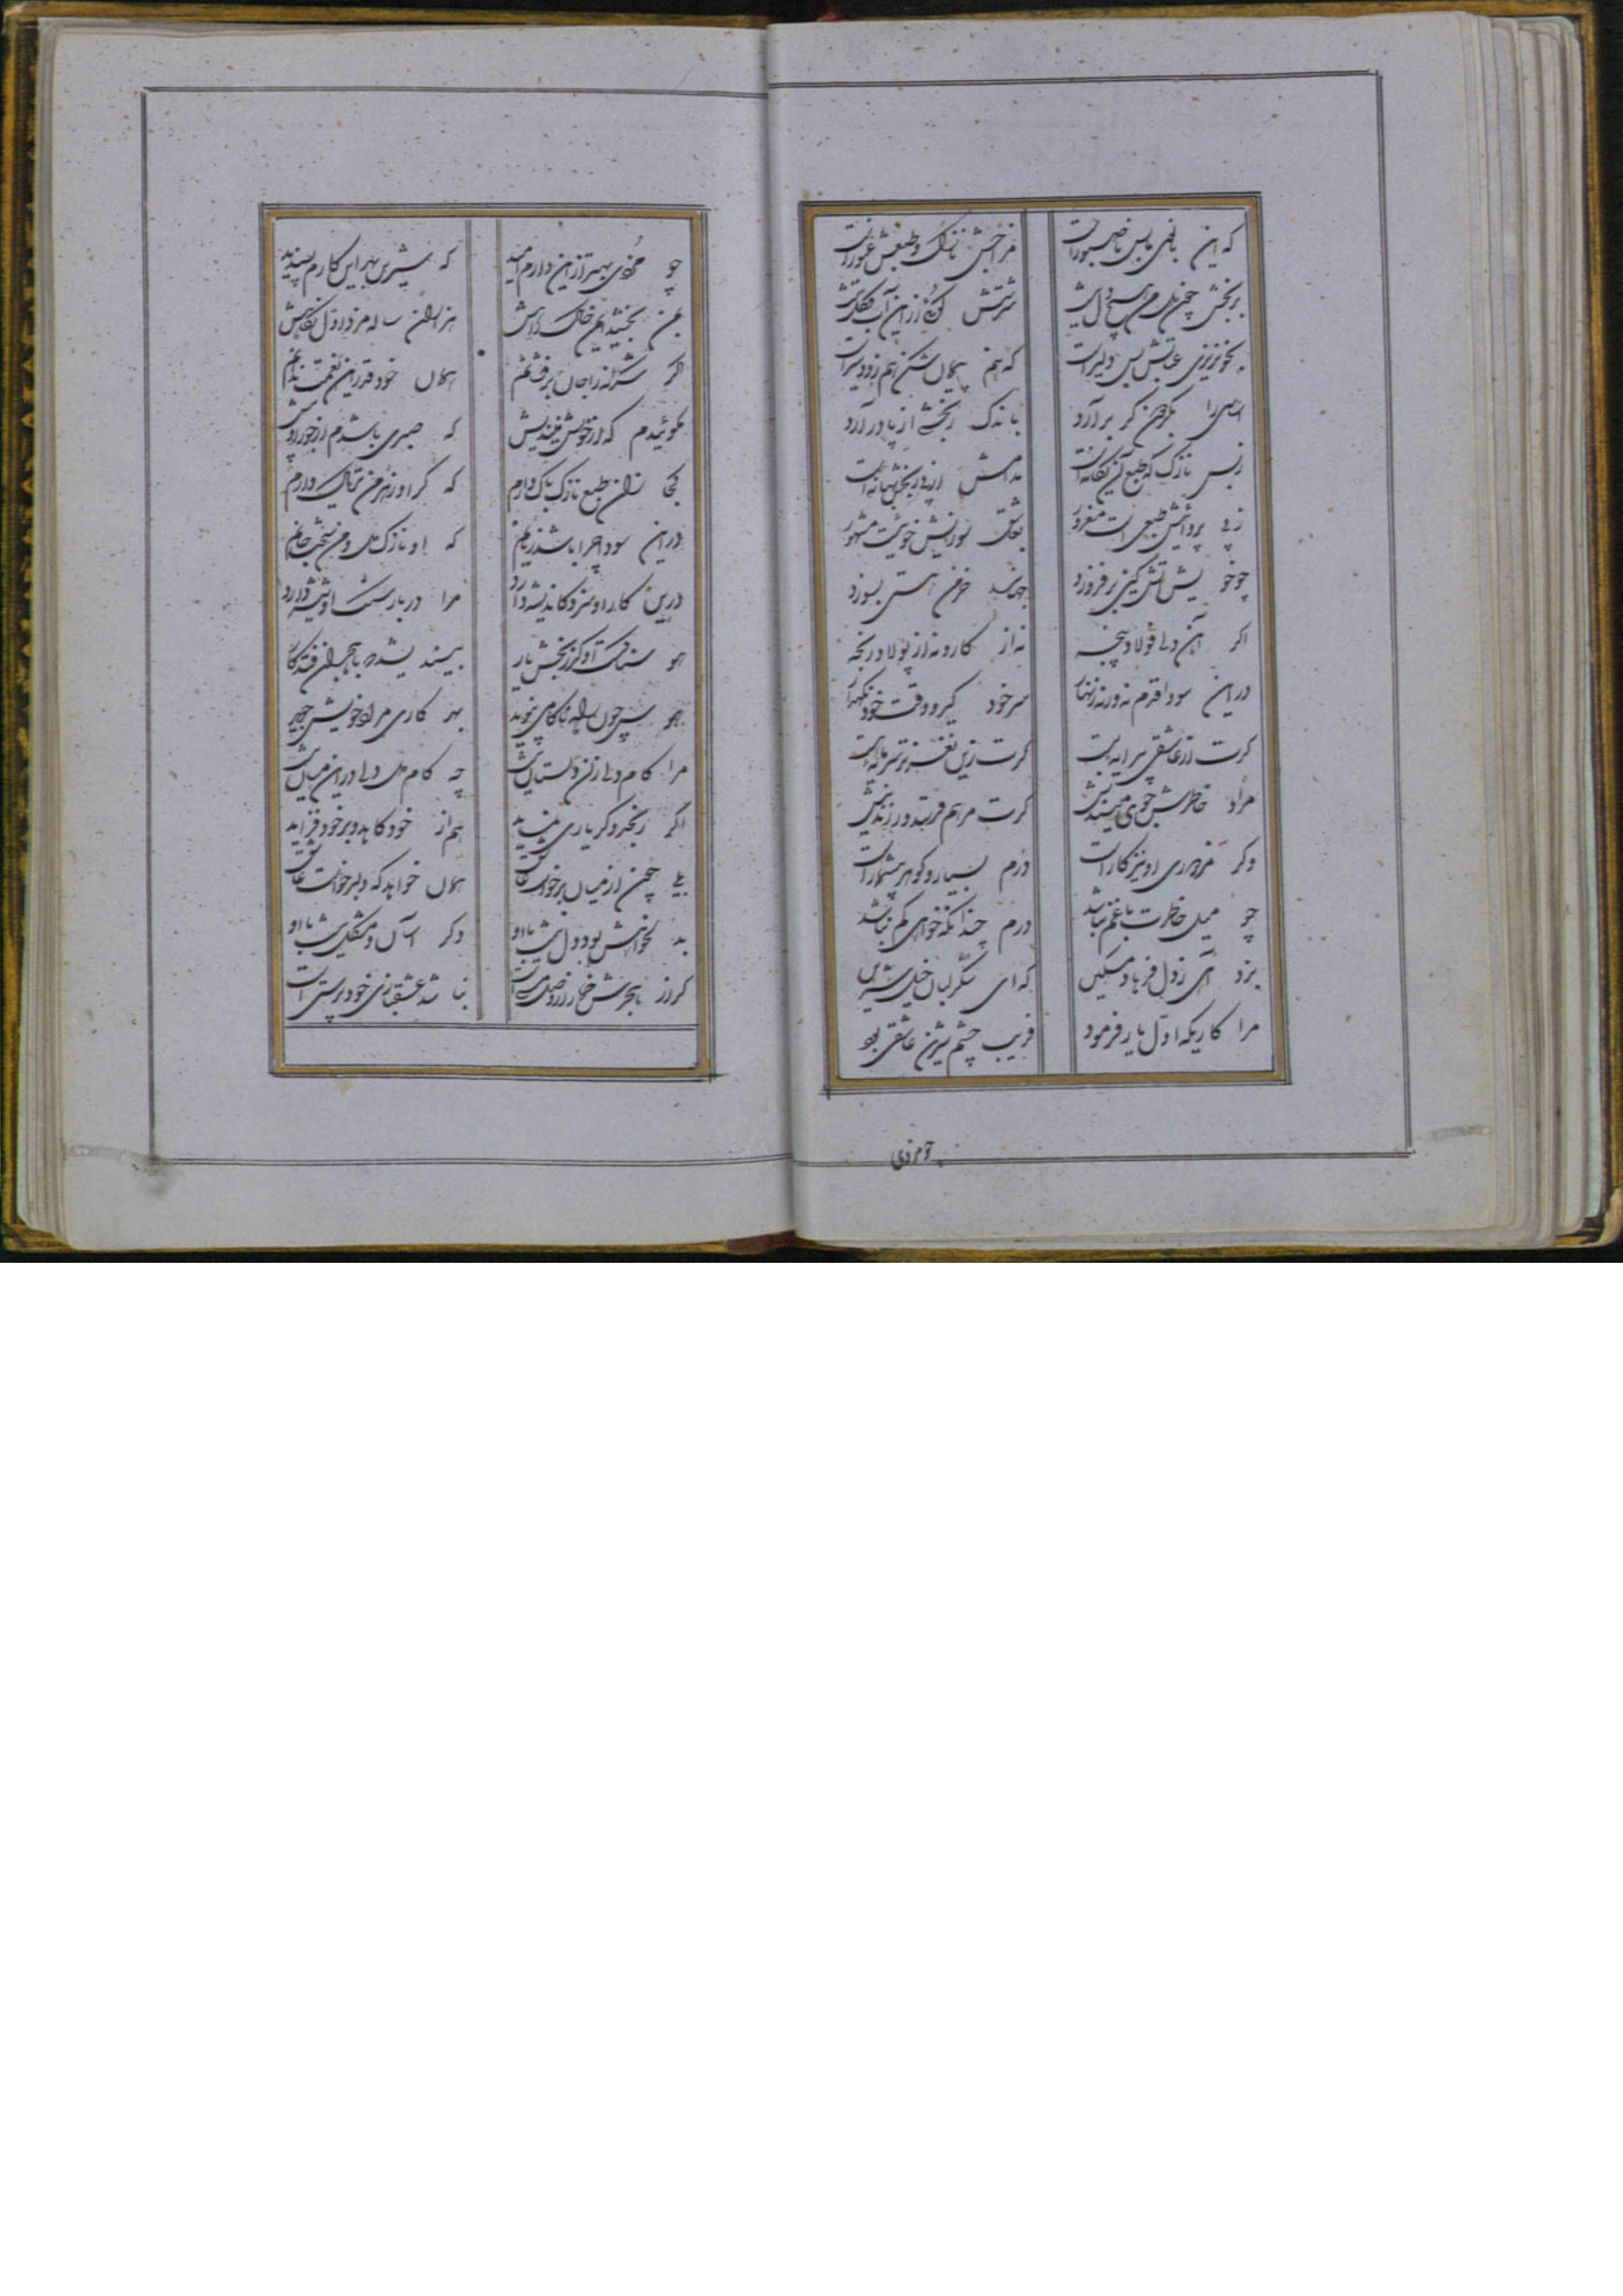 که این بانوی ما بس ناصبور است مزاجش نازک و طبعش غیور است
برنجش سرشتش گوئی از این آب و گل نیست
بخونریزی عتابش بس دلیر است که هم پیمان شکن هم زود سیر است
اساسی را بگردون گر برآرد باندک رنجشی از پا در آرد
ز بس نازک که طبع آن یگانه است مدامش از پی رنجش بهانه است
ز بی پروائیش طبعی است مغرور بعاشق سوزیش خوئیست مشهور
چو خویش آتش کین برفروزد خرمن هستی بسوزد
اگر آهن دلی فولاد پنجه نه از کار و نه از پولاد رنجه
درین سودا قدم نه ورنه زنهار سر خود گیر و وقت خود نگهدار
گرت از عاشقی پیرایه هست گرت زین نغزتر سرمایه هست
مراد خاطرش جوی گرت مرهم فرستد
وگر مزدوری او نیز کار است درم بسیار و گوهر بیشمار است
چو میل خاطرت با غم نباشد درم چندانکه خواهی کم نباشد
بزد آهی ز دل فرهاد مسکین که ای شکر لبان خیل شیرین
مرا کاریکه اول یار فرمود فریب چشم شیرین عاشقی بود
تو مزدی
چو مزدی بهتر از این دارم امید که شیرین بهر این کارم پسندید
من بخشید این خاک راهش هزاران ساله مزد اول نگاهش
اگر شکرانه را جان برفشانم همان خود قدر این نعمت ندانم
مگوئیدم که از خویش میندیش که صبری باشدم از جور او بیش
کجا زان طبع نازک باک دارم که گر او زهر من تریاک دارم
درین سودا چرا باشد زیانم که او نازک دل و من سخت جانم
درین کار او سزد کاندیشه دارد مرا در بار سنگ او شیشه دارد
هوسناک است او کز رنجش یار
هوس چون راه ناکامی نپوید بهر کاری مراد خویش جوید
مرا کام دل از آن دلستان است چه کام دل دل در این میان است
اگر رنجد وگر یاری نماید هم از خود کاهد و بر خود فزاید
بلی چون از میان برخواست عاشق همان خواهد که دلبر خواست عاشق
بد لخواهش بود دل شاد با او وگر آسان و مشکل شاد با او
گر از هجرش خمار از وصل مستی است نباشد عشقبازی خودپرستی است